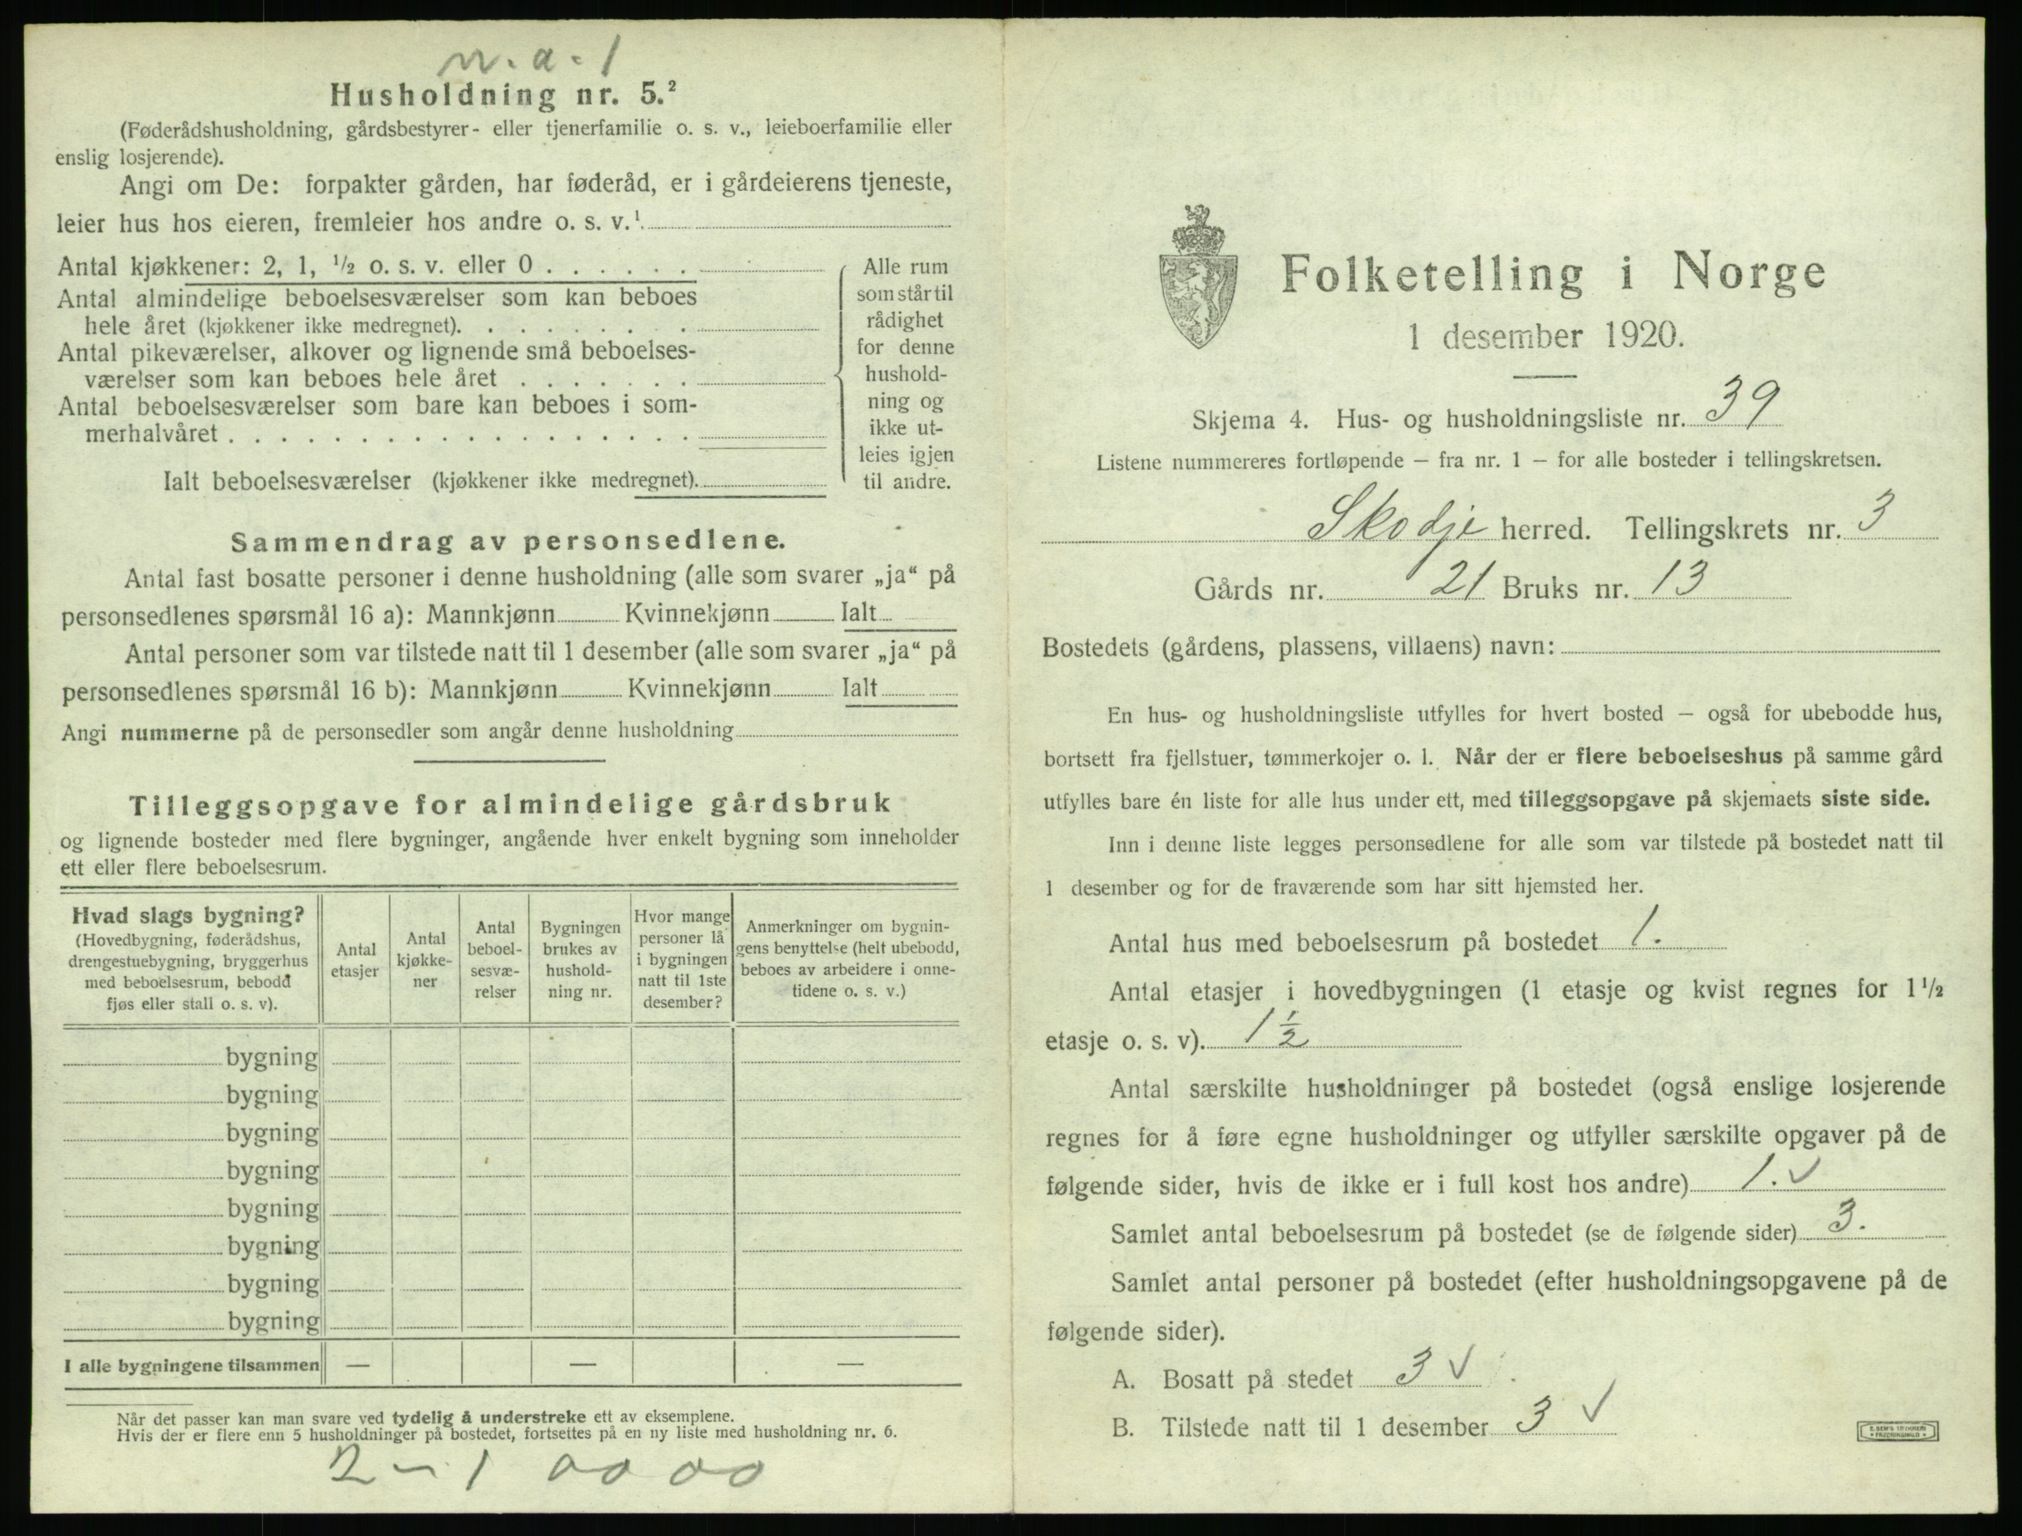 n. a. 1
Husholdning nr. 5.²
(Føderådshusholdning, gårdsbestyrer- eller tjenerfamilie o. s. v., leieboerfamilie eller
enslig losjerende).
Angi om De: forpakter gården, har føderåd, er i gårdeierens tjeneste,
leier hus hos eieren, fremleier hos andre o. s. v.¹
Antal kjøkkener: 2, 1, ½ o. s. v. eller 0 . . . . . .
Antal almindelige beboelsesværelser som kan beboes
hele året (kjøkkener ikke medregnet). . . . . . . . .
Antal pikeværelser, alkover og lignende små beboelses-
værelser som kan beboes hele året . . . . . . .
Antal beboelsesværelser som bare kan beboes i som-
merhalvåret . . . . . . . . . . . . . . . . . .
Ialt beboelsesværelser (kjøkkener ikke medregnet).
Alle rum
som står til
rådighet
for denne
hushold-
ning og
ikke ut-
leies igjen
til andre.
Sammendrag av personsedlene.
Antal fast bosatte personer i denne husholdning (alle som svarer „ja“ på
personsedlenes spørsmål 16 a): Mannkjønn Kvinnekjønn Ialt
Antal personer som var tilstede natt til 1 desember (alle som svarer „ja“ på
personsedlenes spørsmål 16 b): Mannkjønn Kvinnekjønn Ialt
Angi nummerne på de personsedler som angår denne husholdning
Tilleggsopgave for almindelige gårdsbruk
og lignende bosteder med flere bygninger, angående hver enkelt bygning som inneholder
ett eller flere beboelsesrum.
Hvad slags bygning?
(Hovedbygning, føderådshus,
drengestuebygning, bryggerhus
med beboelsesrum, bebodd
fjøs eller stall o. s. v).
Antal
etasjer
Antal
kjøkke-
ner
Antal
beboel-
sesvæ-
relser
Bygningen
brukes av
hushold-
ning nr.
Hvor mange
personer lå
i bygningen
natt til 1ste
desember?
Anmerkninger om bygnin-
gens benyttelse (helt ubebodd,
beboes av arbeidere i onne-
tidene o. s. v.)
bygning
bygning
bygning
bygning
bygning
bygning
bygning
bygning
I alle bygningene tilsammen — — —
Når det passer kan man svare ved tydelig å understreke ett av eksemplene.
Hvis der er flere enn 5 husholdninger på bostedet, fortsettes på en ny liste med husholdning nr. 6.
2 - 1 00 00
Folketelling i Norge
1 desember 1920.
Skjema 4. Hus- og husholdningsliste nr. 39
Listene nummereres fortløpende — fra nr. 1 — for alle bosteder i tellingskretsen.
Skodje herred. Tellingskrets nr. 3
Gårds nr. 21 Bruks nr. 13
Bostedets (gårdens, plassens, villaens) navn:
En hus- og husholdningsliste utfylles for hvert bosted — også for ubebodde hus,
bortsett fra fjellstuer, tømmerkojer o. l. Når der er flere beboelseshus på samme gård
utfylles bare én liste for alle hus under ett, med tilleggsopgave på skjemaets siste side.
Inn i denne liste legges personsedlene for alle som var tilstede på bostedet natt til
1 desember og for de fraværende som har sitt hjemsted her.
Antal hus med beboelsesrum på bostedet 1.
Antal etasjer i hovedbygningen (1 etasje og kvist regnes for 1½
etasje o. s. v). 1½
Antal særskilte husholdninger på bostedet (også enslige losjerende
regnes for å føre egne husholdninger og utfyller særskilte opgaver på de
følgende sider, hvis de ikke er i full kost hos andre) 1. ✓
Samlet antal beboelsesrum på bostedet (se de følgende sider) 3.
Samlet antal personer på bostedet (efter husholdningsopgavene på de
følgende sider).
A. Bosatt på stedet 3 ✓
B. Tilstede natt til 1 desember 3 ✓